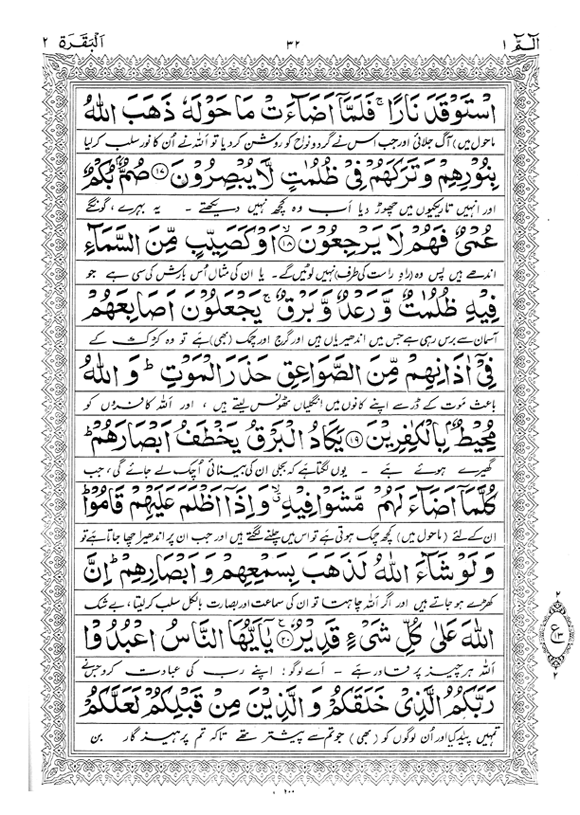 الٓمّٓ ١ ٣٢ اَلْبَقَرَة ٢
اسْتَوْقَدَ نَارًا ۚ فَلَمَّآ اَضَآءَتْ مَا حَوْلَهٗ ذَهَبَ اللّٰهُ
ماحول میں) آگ جلائی اور جب اس نے گرد و نواح کو روشن کر دیا تو اللہ نے اُن کا نور سلب کر لیا
بِنُوْرِهِمْ وَ تَرَكَهُمْ فِیْ ظُلُمٰتٍ لَّا یُبْصِرُوْنَ ﴿۱۷﴾ صُمٌّۢ بُكْمٌ
اور انہیں تاریکیوں میں چھوڑ دیا اب وہ کچھ نہیں دیکھتے ۔ یہ بہرے، گونگے
عُمْیٌ فَهُمْ لَا یَرْجِعُوْنَ ﴿۱۸﴾ اَوْ كَصَیِّبٍ مِّنَ السَّمَآءِ
اندھے ہیں پس وہ (راہِ راست کی طرف) نہیں لوٹیں گے۔ یا ان کی مثال اُس بارش کی سی ہے جو
فِیْهِ ظُلُمٰتٌ وَّ رَعْدٌ وَّ بَرْقٌ ۚ یَجْعَلُوْنَ اَصَابِعَهُمْ
آسمان سے برس رہی ہے جس میں اندھیریاں ہیں اور گرج اور چمک (بھی) ہے تو وہ کڑک کے
فِیْۤ اٰذَانِهِمْ مِّنَ الصَّوَاعِقِ حَذَرَ الْمَوْتِ ؕ وَ اللّٰهُ
باعث موت کے ڈر سے اپنے کانوں میں انگلیاں ٹھونس لیتے ہیں ، اور اللہ کافروں کو
مُحِیْطٌۢ بِالْكٰفِرِیْنَ ﴿۱۹﴾ یَكَادُ الْبَرْقُ یَخْطَفُ اَبْصَارَهُمْ ؕ
گھیرے ہوئے ہے ۔ یوں لگتا ہے کہ بجلی ان کی بینائی اُچک لے جائے گی، جب
كُلَّمَآ اَضَآءَ لَهُمْ مَّشَوْا فِیْهِ ۙ وَ اِذَآ اَظْلَمَ عَلَیْهِمْ قَامُوْا ؕ
ان کے لئے (ماحول میں) کچھ چمک ہوتی ہے تو اس میں چلنے لگتے ہیں اور جب ان پر اندھیرا چھا جاتا ہے تو
وَ لَوْ شَآءَ اللّٰهُ لَذَهَبَ بِسَمْعِهِمْ وَ اَبْصَارِهِمْ ؕ اِنَّ
کھڑے ہو جاتے ہیں اور اگر اللہ چاہتا تو ان کی سماعت اور بصارت بالکل سلب کر لیتا، بے شک
اللّٰهَ عَلٰی كُلِّ شَیْءٍ قَدِیْرٌ ﴿۲۰﴾ یٰۤاَیُّهَا النَّاسُ اعْبُدُوْا
اللہ ہر چیز پر قادر ہے ۔ اے لوگو! اپنے رب کی عبادت کرو جس نے
رَبَّكُمُ الَّذِیْ خَلَقَكُمْ وَ الَّذِیْنَ مِنْ قَبْلِكُمْ لَعَلَّكُمْ
تمہیں پیدا کیا اور اُن لوگوں کو (بھی) جو تم سے پیشتر تھے تاکہ تم پرہیزگار بن
٢
ع
١٣
٢
٢٠٠